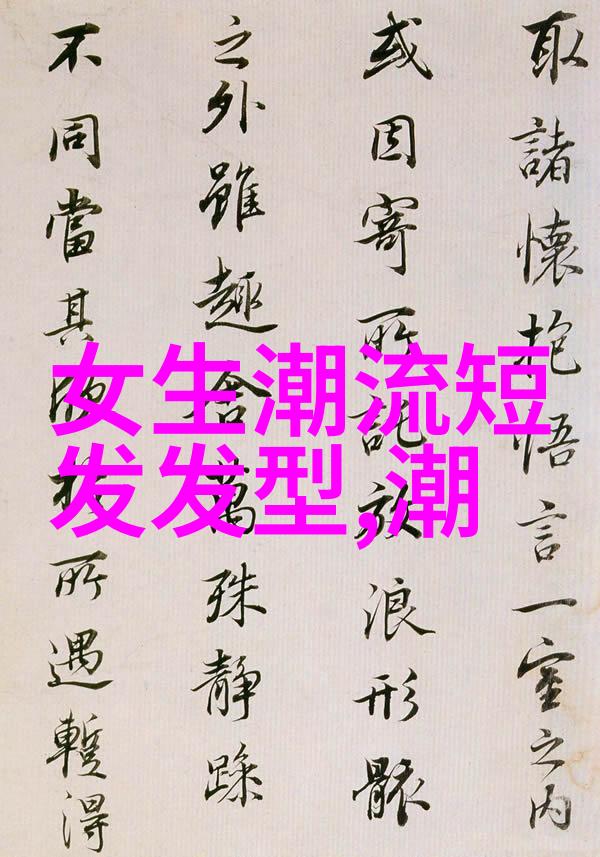 取諸懷抱悟言一室之内
或因寄所託放浪形骸
之外雖趣舍萬殊静躁
不同當其欣於所遇蹔得
女生潮流短
发发型,潮